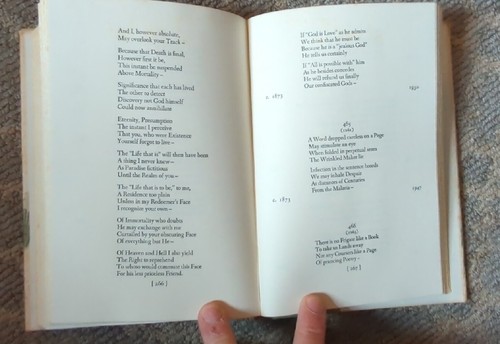 And I, however absolute,
May overlook your Track –
Because that Death is final,
However first it be,
This instant be suspended
Above Mortality –
Significance that each has lived
The other to detect
Discovery not God himself
Could now annihilate
Eternity, Presumption
The instant I perceive
That you, who were Existence
Yourself forgot to live –
The "Life that is" will then have been
A thing I never knew –
As Paradise fictitious
Until the Realm of you –
The "Life that is to be," to me,
A Residence too plain
Unless in my Redeemer's Face
I recognize your own –
Of Immortality who doubts
He may exchange with me
Curtailed by your obscuring Face
Of everything but He –
Of Heaven and Hell I also yield
The Right to reprehend
To whoso would commute this Face
For his less priceless Friend.
[ 266 ]
If "God is Love" as he admits
We think that he must be
Because he is a "jealous God"
He tells us certainly
If "All is possible with" him
As he besides concedes
He will refund us finally
Our confiscated Gods –
c. 1873
1932
485
(1261)
A Word dropped careless on a Page
May stimulate an eye
When folded in perpetual seam
The Wrinkled Maker lie
Infection in the sentence breeds
We may inhale Despair
At distances of Centuries
From the Malaria –
c. 1873
1947
486
(1263)
There is no Frigate like a Book
To take us Lands away
Nor any Coursers like a Page
Of prancing Poetry –
[ 267 ]